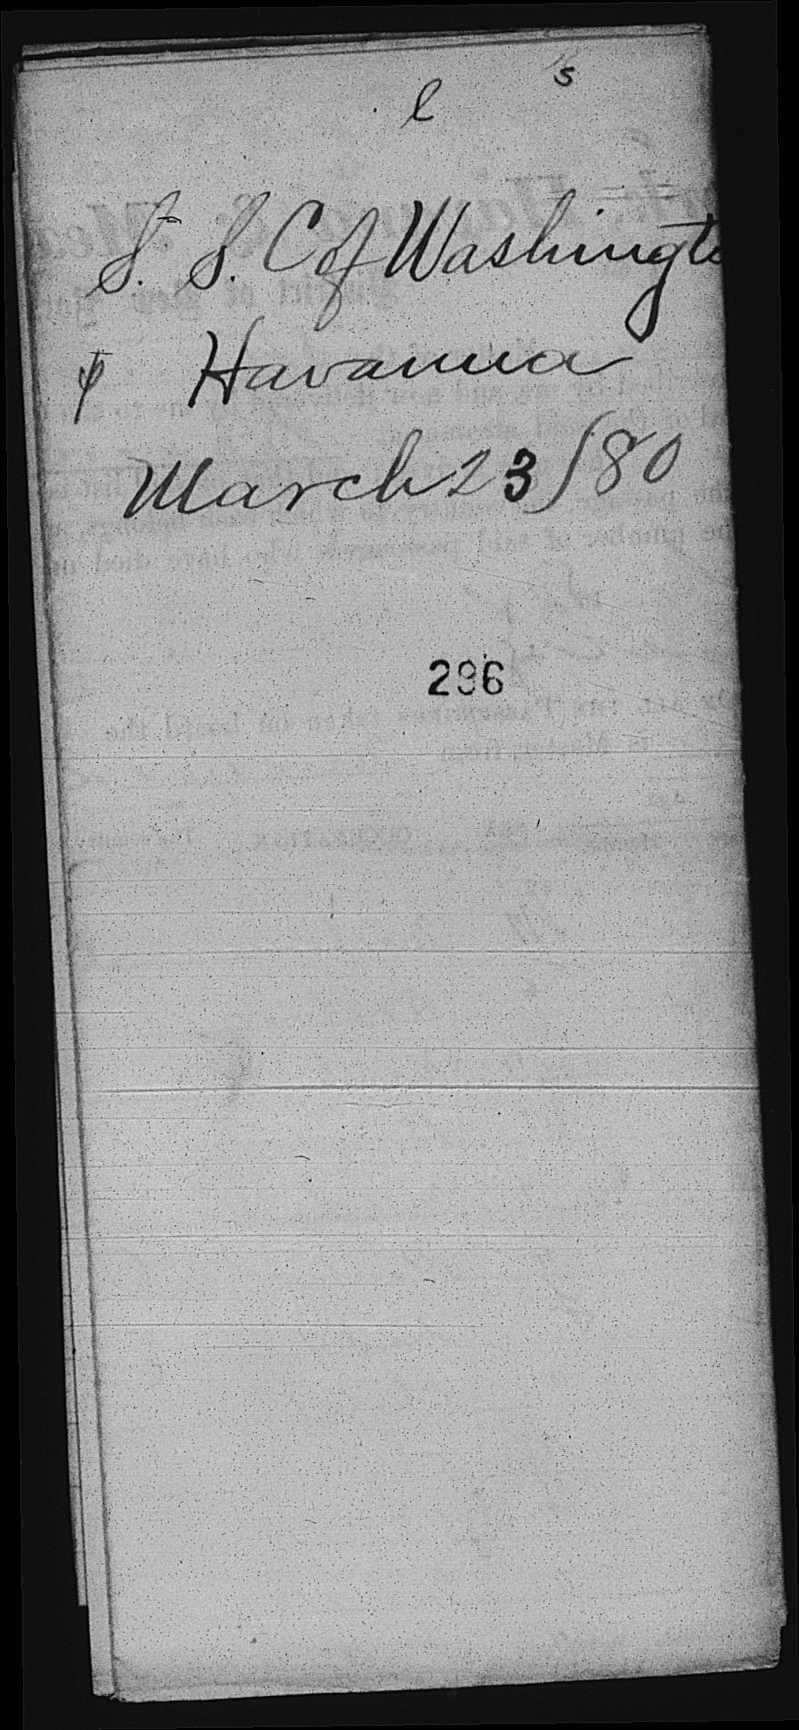 l s
S. S. C of Washingto
φ Havanna
March 23/80
296